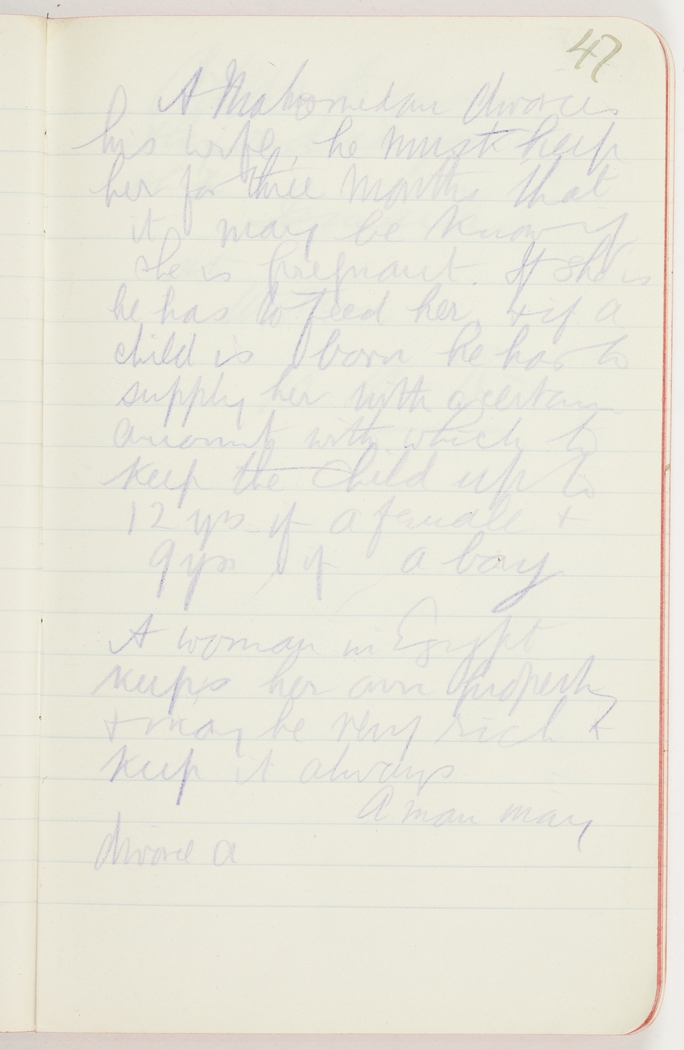 47
A Mahomedan divorces
his wife, he must keep
her for three months that
it may be known if
she is pregnant. If she is
he has to feed her, & if a
child is born he has to
supply her with a certain
amount with which to
keep the child up to
12 yrs if a female &
9 yrs if a boy
A woman in Egypt
keeps her own property
& may be very rich &
keep it always
A man may
divorce a